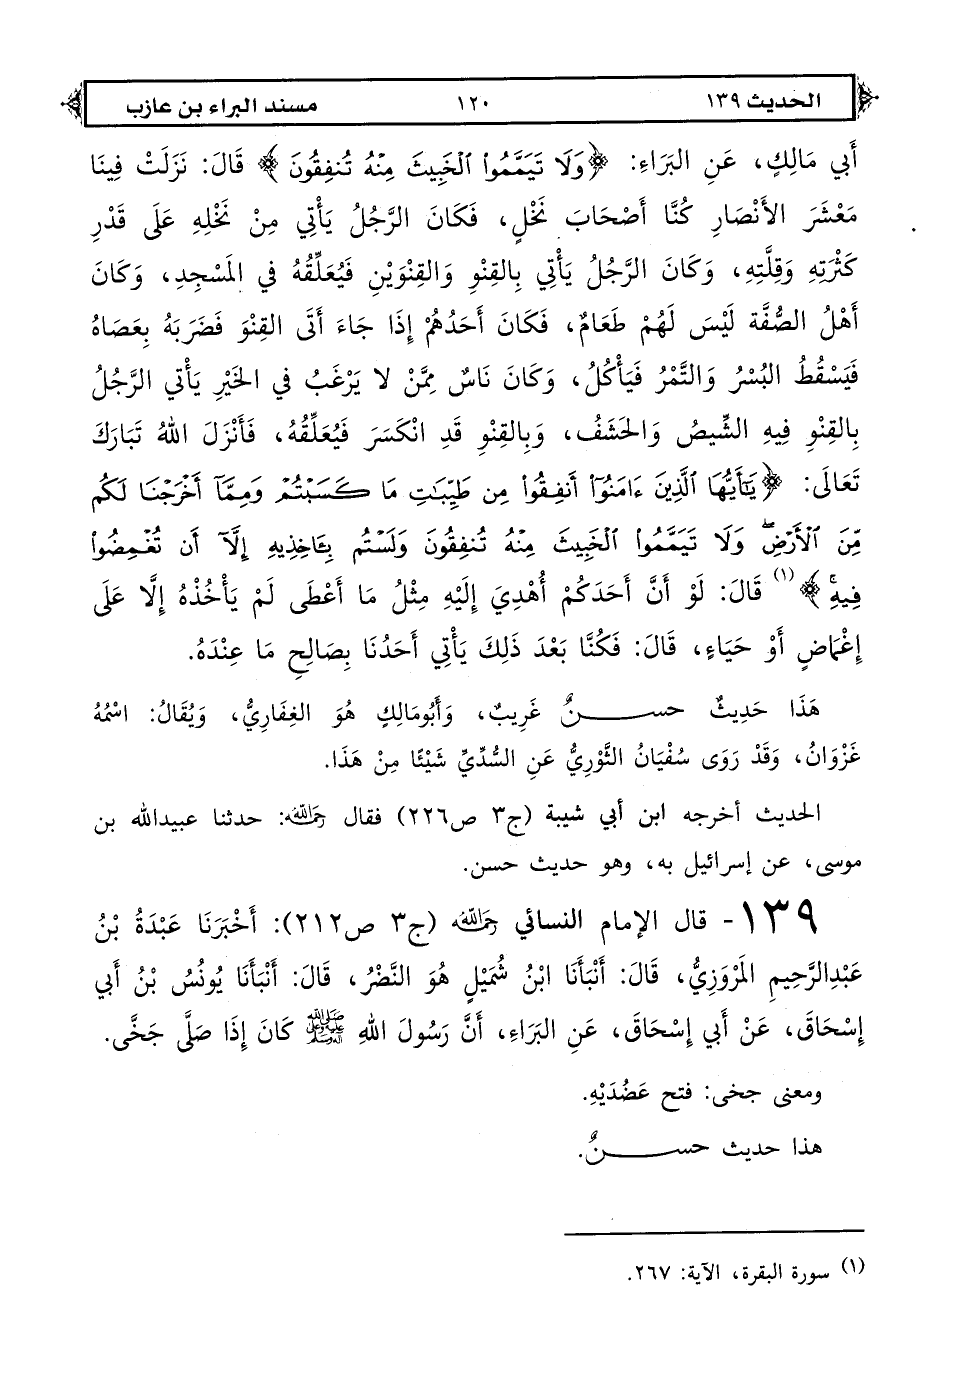 الحديث ١٣٩ ١٢٠ مسند البراء بن عازب
أَبِي مَالِكٍ، عَنِ البَرَاءِ: ﴿وَلَا تَيَمَّمُوا۟ ٱلْخَبِيثَ مِنْهُ تُنفِقُونَ﴾ قَالَ: نَزَلَتْ فِينَا
مَعْشَرَ الأَنْصَارِ كُنَّا أَصْحَابَ نَخْلٍ، فَكَانَ الرَّجُلُ يَأْتِي مِنْ نَخْلِهِ عَلَى قَدْرِ
كَثْرَتِهِ وَقِلَّتِهِ، وَكَانَ الرَّجُلُ يَأْتِي بِالقِنْوِ وَالقِنْوَيْنِ فَيُعَلِّقُهُ فِي المَسْجِدِ، وَكَانَ
أَهْلُ الصُّفَّةِ لَيْسَ لَهُمْ طَعَامٌ، فَكَانَ أَحَدُهُمْ إِذَا جَاءَ أَتَى القِنْوَ فَضَرَبَهُ بِعَصَاهُ
فَيَسْقُطُ البُسْرُ وَالتَّمْرُ فَيَأْكُلُ، وَكَانَ نَاسٌ مِمَّنْ لا يَرْغَبُ فِي الخَيْرِ يَأْتِي الرَّجُلُ
بِالقِنْوِ فِيهِ الشِّيصُ وَالحَشَفُ، وَبِالقِنْوِ قَدِ انْكَسَرَ فَيُعَلِّقُهُ، فَأَنْزَلَ اللهُ تَبَارَكَ
تَعَالَى: ﴿يَـٰٓأَيُّهَا ٱلَّذِينَ ءَامَنُوٓا۟ أَنفِقُوا۟ مِن طَيِّبَـٰتِ مَا كَسَبْتُمْ وَمِمَّآ أَخْرَجْنَا لَكُم
مِّنَ ٱلْأَرْضِ ۖ وَلَا تَيَمَّمُوا۟ ٱلْخَبِيثَ مِنْهُ تُنفِقُونَ وَلَسْتُم بِـَٔاخِذِيهِ إِلَّآ أَن تُغْمِضُوا۟
فِيهِ ۚ﴾(١) قَالَ: لَوْ أَنَّ أَحَدَكُمْ أُهْدِيَ إِلَيْهِ مِثْلُ مَا أَعْطَى لَمْ يَأْخُذْهُ إِلَّا عَلَى
إِغْمَاضٍ أَوْ حَيَاءٍ، قَالَ: فَكُنَّا بَعْدَ ذَلِكَ يَأْتِي أَحَدُنَا بِصَالِحِ مَا عِنْدَهُ.
هَذَا حَدِيثٌ حســـنٌ غَرِيبٌ، وَأَبُومَالِكٍ هُوَ الغِفَارِيُّ، وَيُقَالُ: اسْمُهُ
غَزْوَانُ، وَقَدْ رَوَى سُفْيَانُ الثَّوْرِيُّ عَنِ السُّدِّيِّ شَيْئًا مِنْ هَذَا.
الحديث أخرجه ابن أبي شيبة (ج٣ ص٢٢٦) فقال رحمه الله: حدثنا عبيدالله بن
موسى، عن إسرائيل به، وهو حديث حسن.
١٣٩- قال الإمام النسائي رحمه الله (ج٣ ص٢١٢): أَخْبَرَنَا عَبْدَةُ بْنُ
عَبْدِالرَّحِيمِ المَرْوَزِيُّ، قَالَ: أَنْبَأَنَا ابْنُ شُمَيْلٍ هُوَ النَّضْرُ، قَالَ: أَنْبَأَنَا يُونُسُ بْنُ أَبِي
إِسْحَاقَ، عَنْ أَبِي إِسْحَاقَ، عَنِ البَرَاءِ، أَنَّ رَسُولَ اللهِ ﷺ كَانَ إِذَا صَلَّى جَخَّى.
ومعنى جخى: فتح عَضُدَيْهِ.
هذا حديث حســـنٌ.
(١) سورة البقرة، الآية: ٢٦٧.